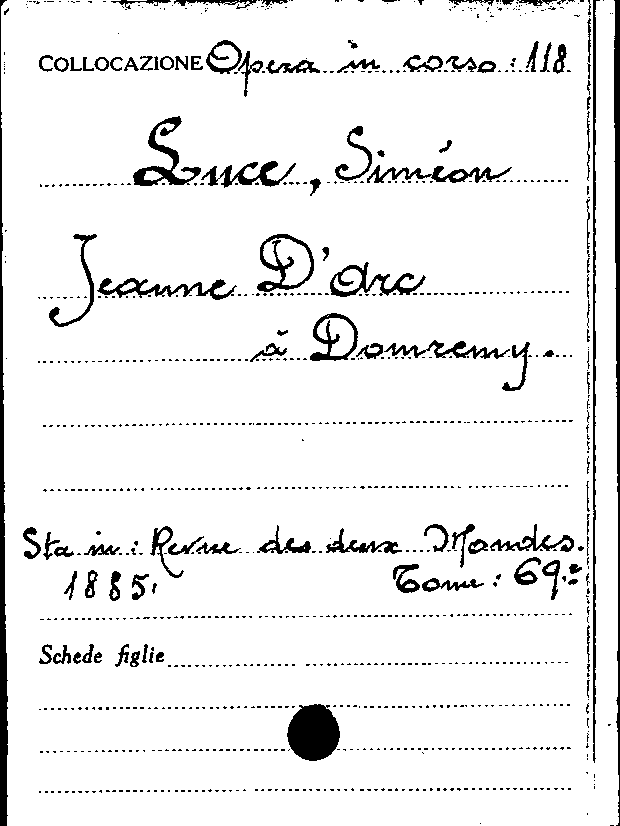 COLLOCAZIONE Opera in corso : 118
Luce, Siméon
Jeanne D'Arc
à Domremy.
Sta in : Revue des deux Mondes.
1885. Tome : 69.º
Schede figlie